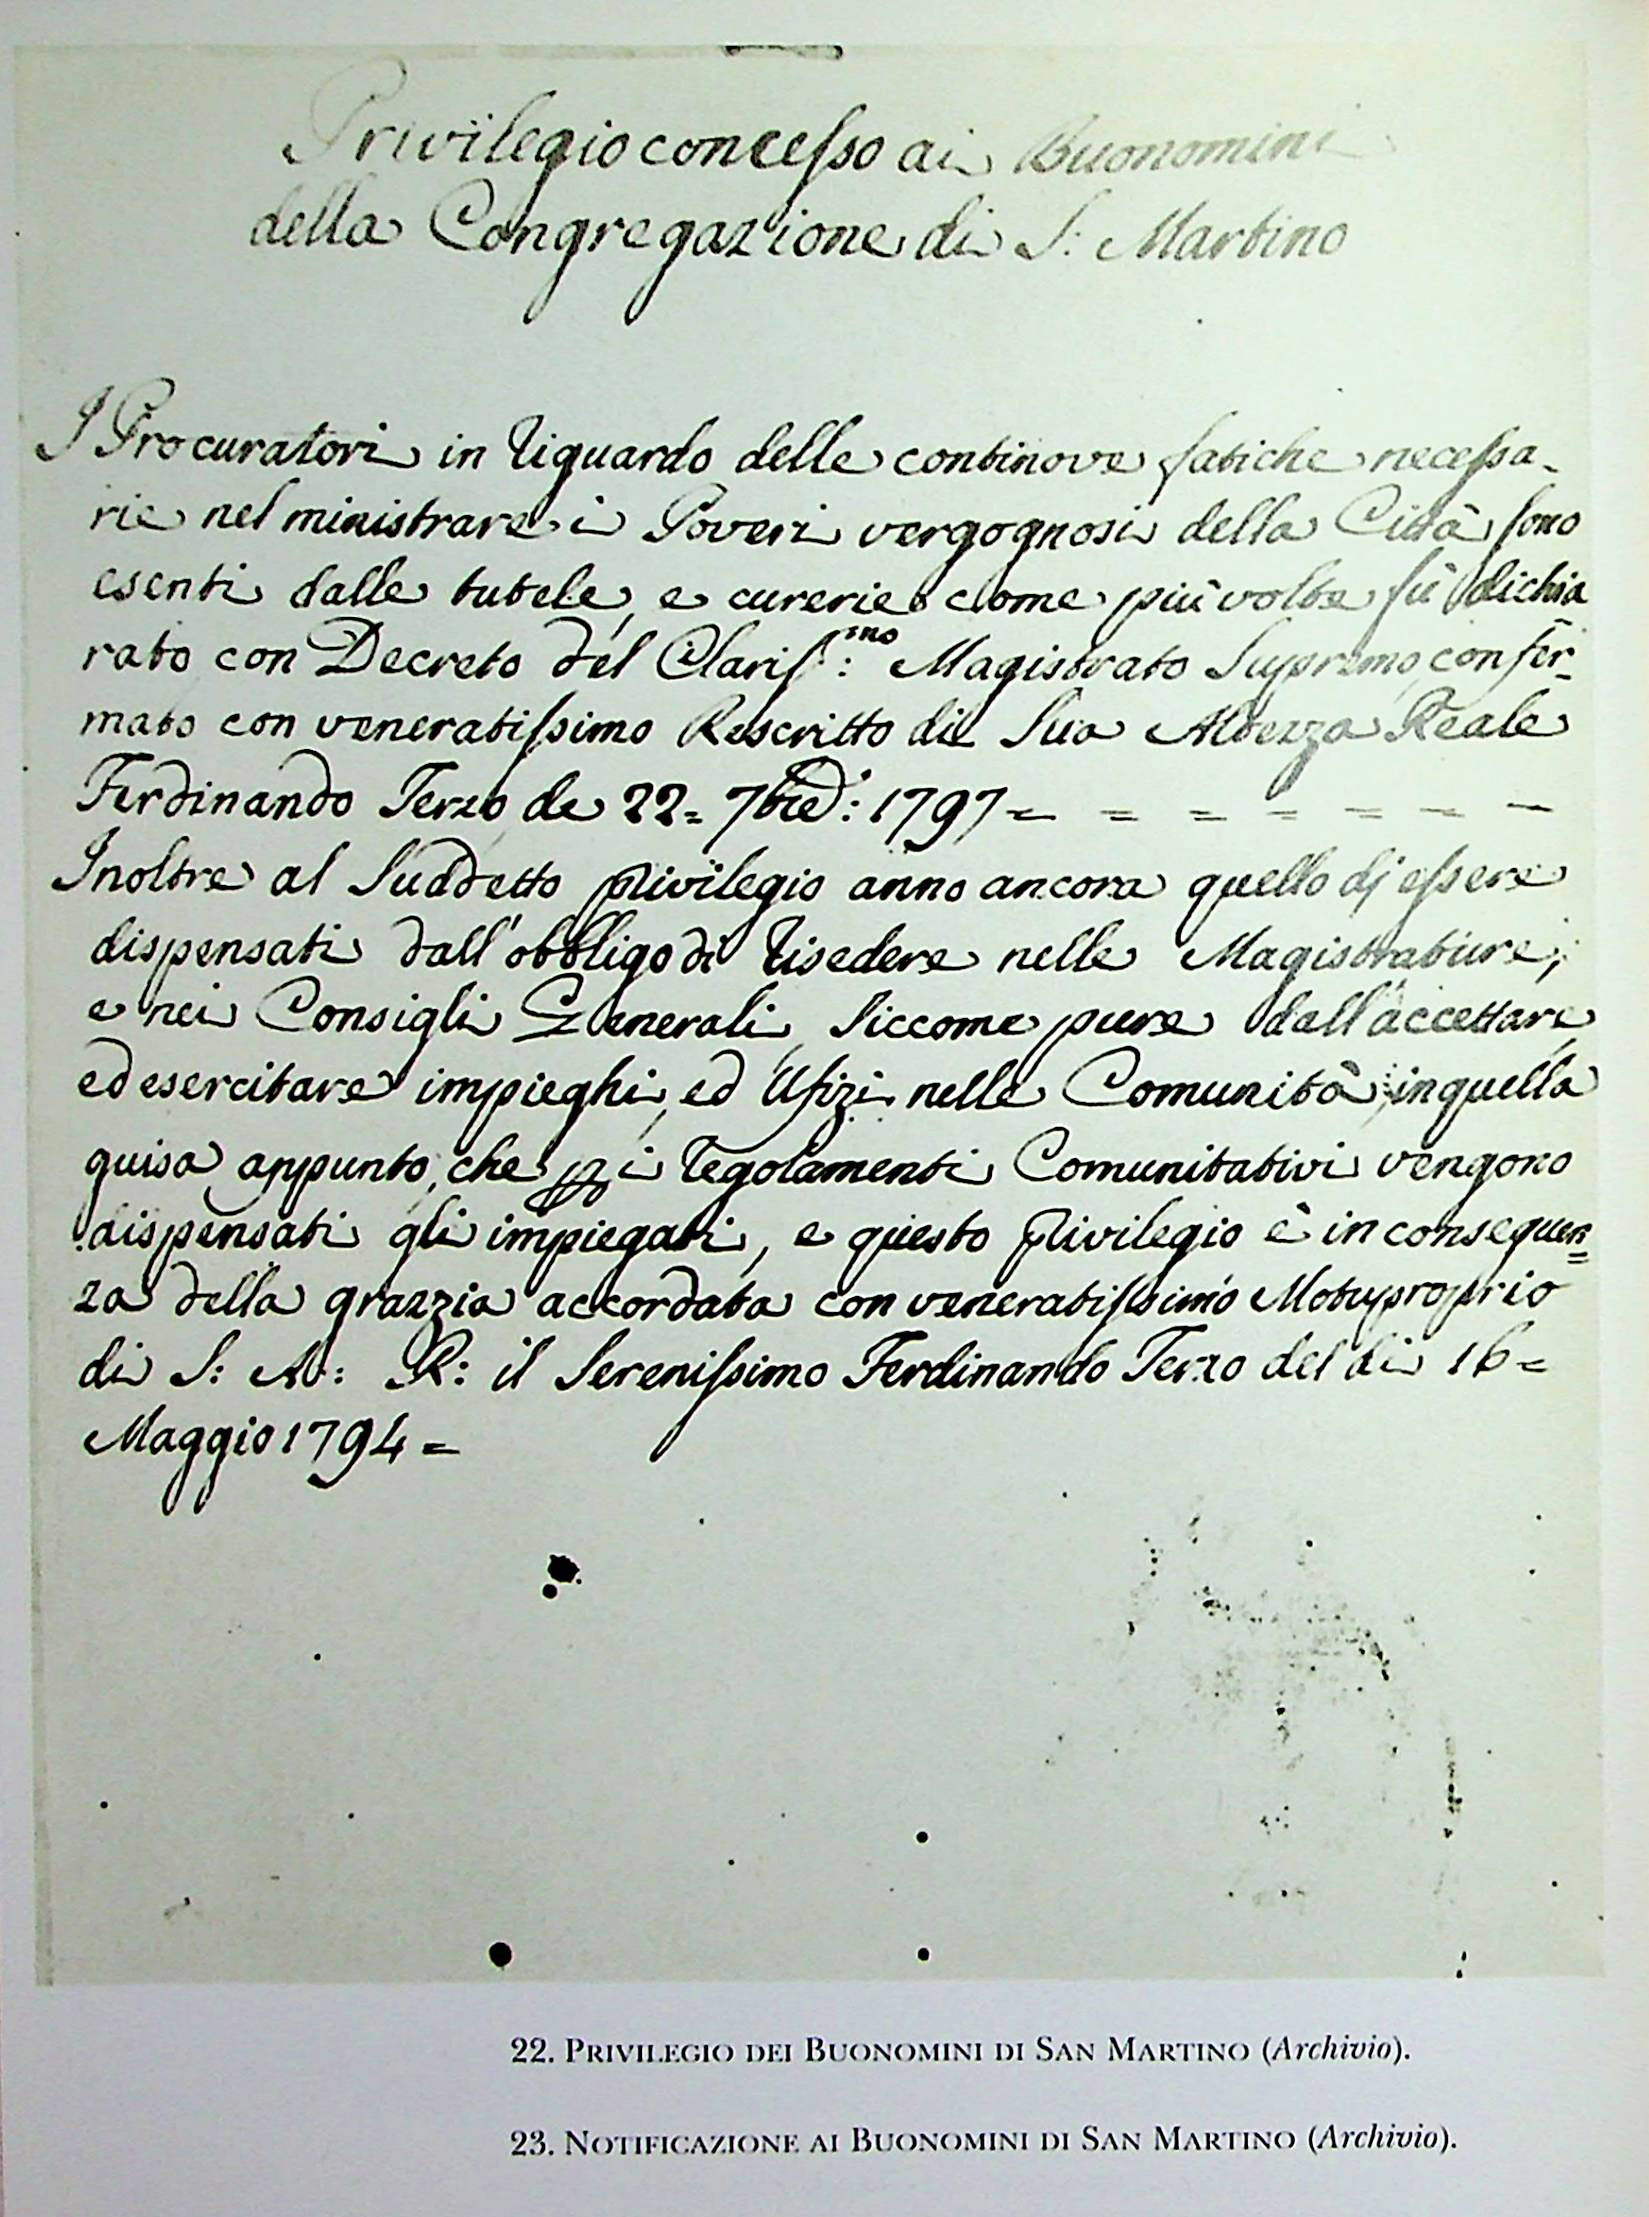 Privilegio concesso ai Buonomini
della Congregazione di S: Martino
I Procuratori in riguardo delle continove fatiche necessa-
rie nel ministrare i Poveri vergognosi della Città sono
esenti dalle tutele, e curerie come più volte fù dichia
rato con Decreto del Clariss:mo Magistrato Supremo, confer-
mato con veneratissimo Rescritto di Sua Altezza Reale
Ferdinando Terzo de 22= 7bre: 1797 = = = = = = =
Inoltre al Suddetto privilegio anno ancora quello di essere
dispensati dall'obbligo di risedere nelle Magistrature,
e nei Consigli Generali, Siccome pure dall'accettare,
ed esercitare impieghi, ed Ufizi nelle Comunità in quella
guisa appunto, che p i regolamenti Comunitativi vengono
dispensati gli impiegati, e questo privilegio è in conseguen=
za della grazzia accordata con veneratissimo Motuproprio
di S: A: R: il Serenissimo Ferdinando Terzo del di 16=
Maggio 1794=
22. Privilegio dei Buonomini di San Martino (Archivio).
23. Notificazione ai Buonomini di San Martino (Archivio).